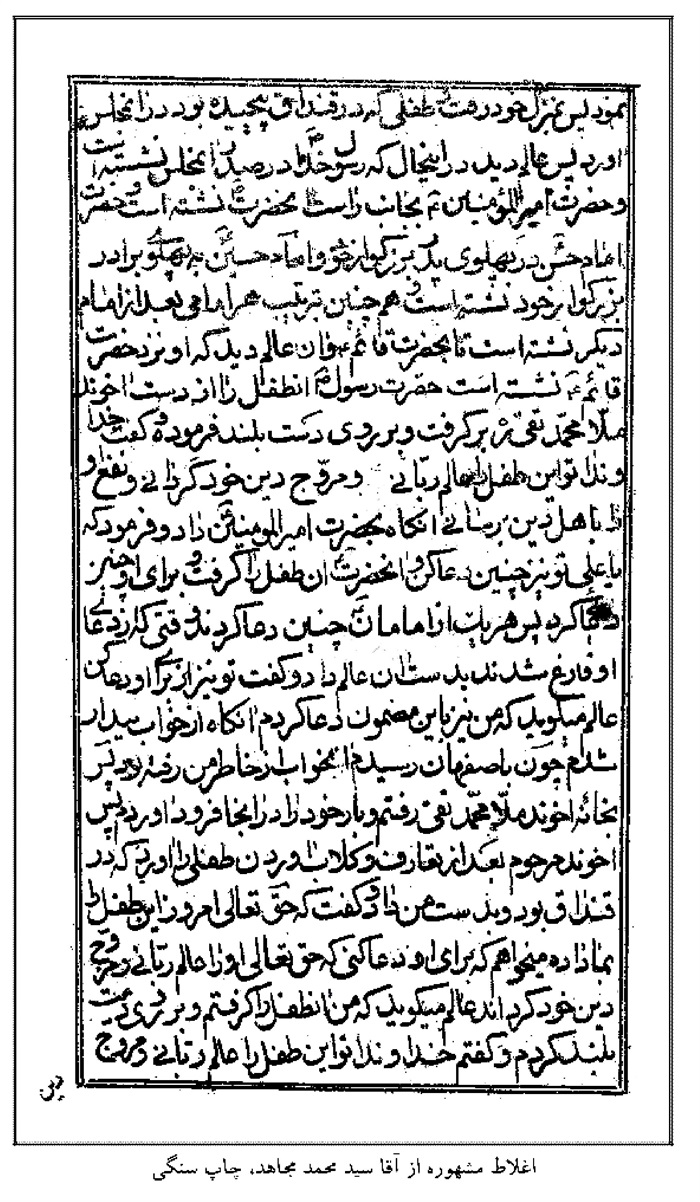 نمود پس بمنزل خود رفت طفلی که در قنداق پیچیده بود در انمجلس
اورد پس عالم دید در اینحال که رسول خدا در صدر انمجلس نشسته است
و حضرت امیر المؤمنین ع بجانب راست انحضرت نشسته است و حضرت
امام حسن در پهلوی پدر بزرکوار خود و امام حسین به پهلوی برادر
بزرکوار خود نشسته است و هم چنین بترتیب هر امامی بعد از امام
دیکر نشسته است تا بحضرت قائم ع و ان عالم دید که او نزد حضرت
قائم ع نشسته است حضرت رسول ص انطفل را از دست اخوند
ملا محمد تقی ره بر کرفت و بر روی دست بلند فرموده و کفت خدا
وندا تو این طفل را عالم ربانی و مروج دین خود کردانی و نفع او
را باهل دین برسانی انکاه بحضرت امیر المومنین داد و فرمود که
یا علی تو نیز چنین دعا کن و انحضرت ان طفل را کرفت و برای او چنین
دعا کرد پس هر یک از امامان چنین دعا کردند وقتی که از دعای
او فارغ شدند بدست ان عالم داد و کفت تو نیز از برای او دعا کن
عالم میکوید که من نیز باین مضمون دعا کردم انکاه از خواب بیدار
شدم چون باصفهان رسیدم انخواب از خاطر من رفته بود پس
بخانه اخوند ملا محمد تقی رفتم و بار خود را در انجا فرود اوردم پس
اخوند مرحوم بعد از تعارف و کلاب اوردن طفلی را اورد که در
قنداق بود و بدست من داد و کفت که حق تعالی امروز این طفل را
بما داده میخواهم که برای او دعا کنی که حق تعالی او را عالم ربانی و مروج
دین خود کرداند عالم میکوید که من انطفل را کرفتم و بر روی دست
بلند کردم و کفتم خداوندا تو این طفل را عالم ربانی و مروج
دین
اغلاط مشهوره از آقا سید محمد مجاهد، چاپ سنگی